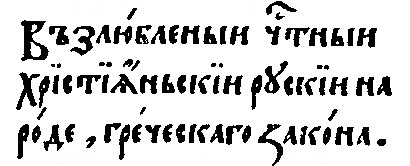 Възлю́бленыи чⷭ҇тныи
хрїстїѧ́ньскїи рускїи на
ро́де , гре́ческаго зако́на .